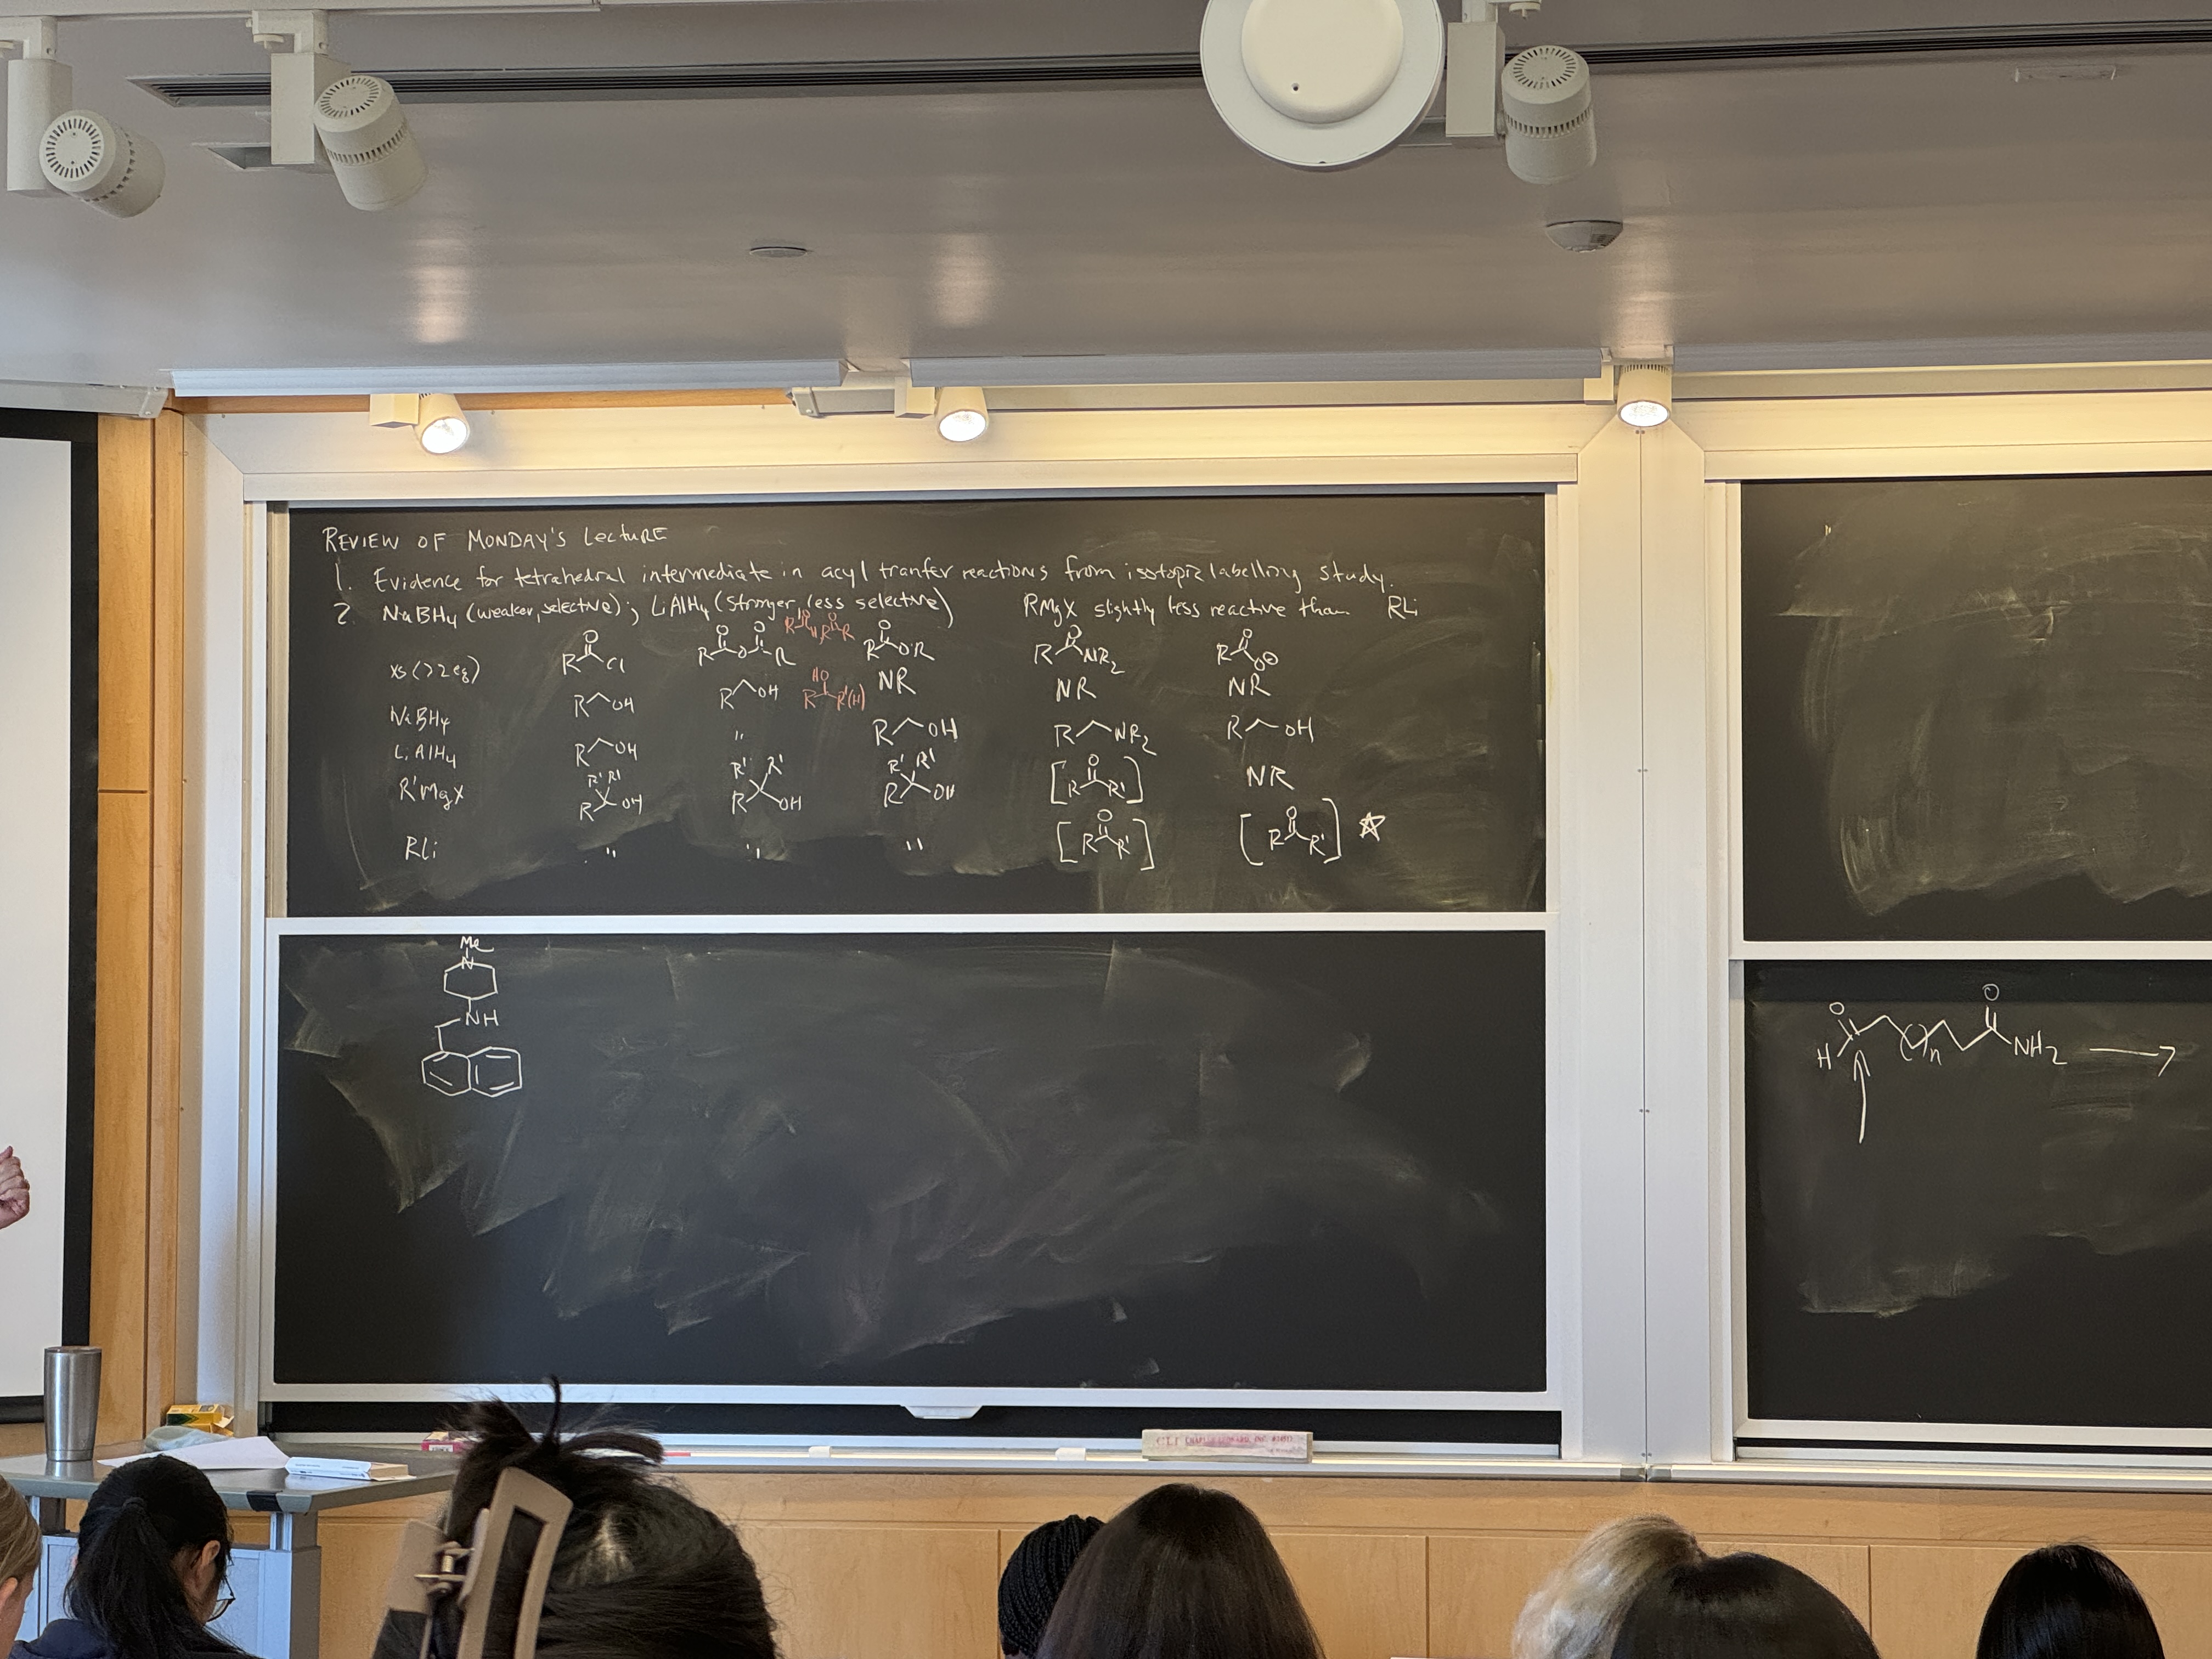 REVIEW OF MONDAY'S LecturE
1. Evidence for tetrahedral intermediate in acyl tranfer reactions from isotopic labelling study.
2. NaBH4 (weaker, selective); LiAlH4 (stronger, less selective) RMgX slightly less reactive than RLi
O O O O O O O O
xs (>2 eq) R Cl R O R R H R R R OR R NR2 R O⊖
HO
NaBH4 R OH R OH R R'(H) NR NR NR
LiAlH4 R OH " R OH R NR2 R OH
R' R' R' R' R' R' O
R'MgX R OH R OH R OH [R R'] NR
O O
RLi " " " [R R'] [R R'] ☆
Me
N
NH
O O
H ( )n NH2 →